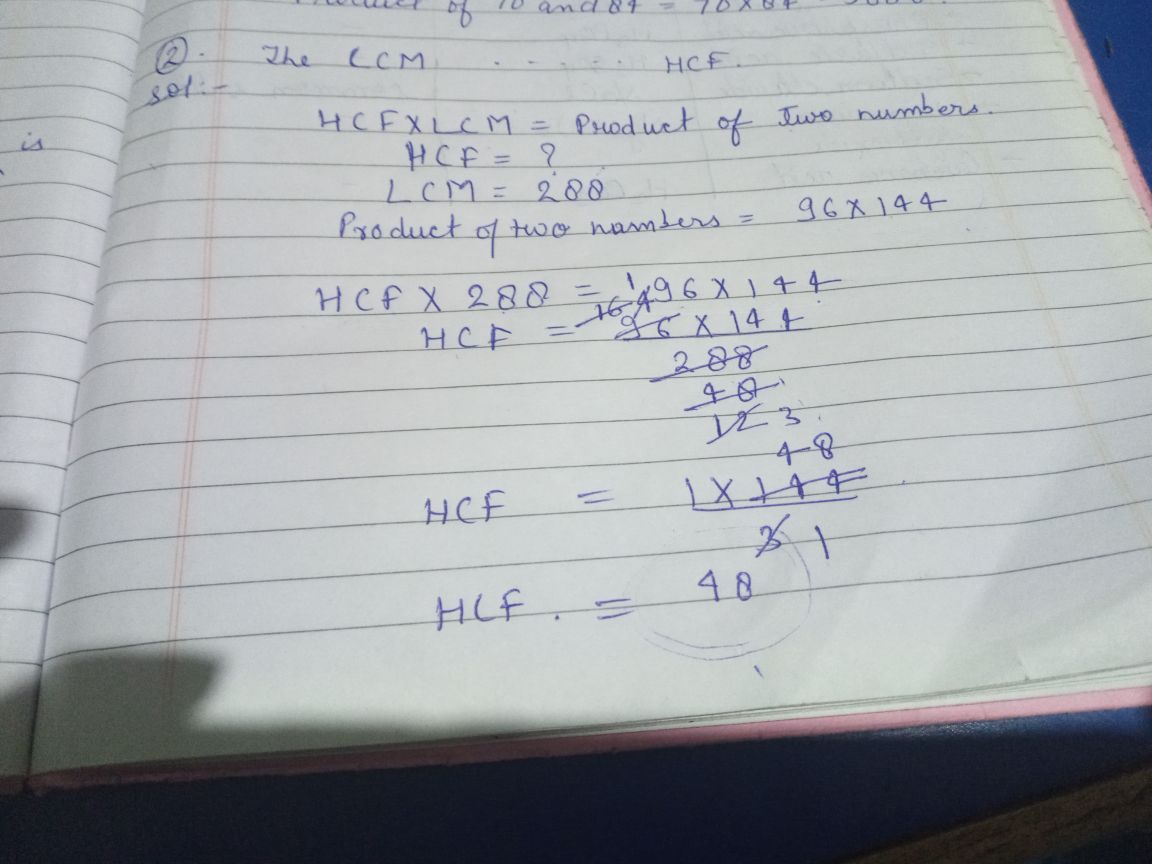 of 70 and 84 = 70 x 84
is
②. The LCM . . . . . . HCF.
sol:-
HCF X LCM = Product of Two numbers.
HCF = ?
LCM = 288
Product of two numbers = 96 X 144
HCF X 288 = 96 X 144
1
16 4
HCF = 96 X 144
288
48
12 3
48
HCF = 1 X 144
3 1
HCF. = 48